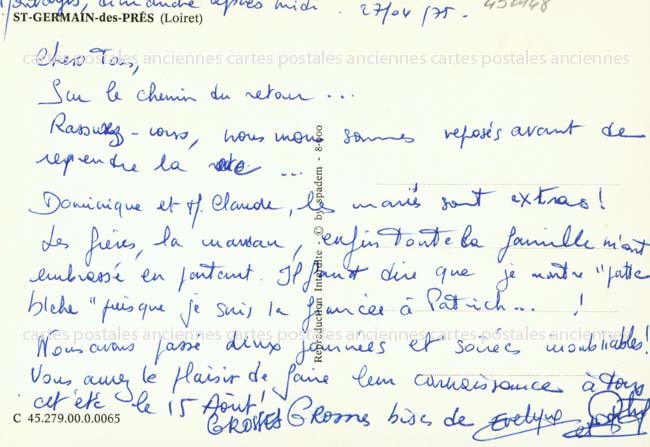 Montargis, dimanche après midi. 27/04/75.
ST-GERMAIN-des-PRÉS (Loiret)
Chers Tous,
cartes postales anciennes cartes postales anciennes cartes postales anciennes
Sur le chemin du retour ...
Rassurez-vous, nous nous sommes reposés avant de
reprendre la route ...
Dominique et M. Claude, les mariés sont extras !
Les frères, la maman, enfin toute la famille m'ont
embrassé en partant. Il faut dire que je montre "patte
blche" puisque je suis la fiancée à Patrick ... !
cartes postales anciennes cartes postales anciennes cartes postales anciennes
Nous avons passé deux journées et soirées inoubliables !
Vous aurez le plaisir de faire leur connaissance à tous
cet été le 15 Août !
GROSSES Grosses bises de Evelyne et
C 45.279.00.0.0065
Reproduction Interdite - © by spadem - 8-000